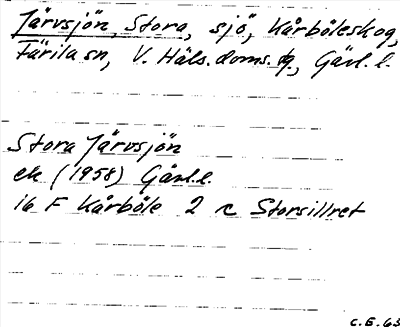 Järvsjön, Stora, sjö, Kårböleskog,
Färila sn, V. Häls. doms. dg., Gävl. l.
Stora Järvsjön
ek (1958) Gävl.l.
16 F Kårböle 2 c Storsillret
C.E. 63